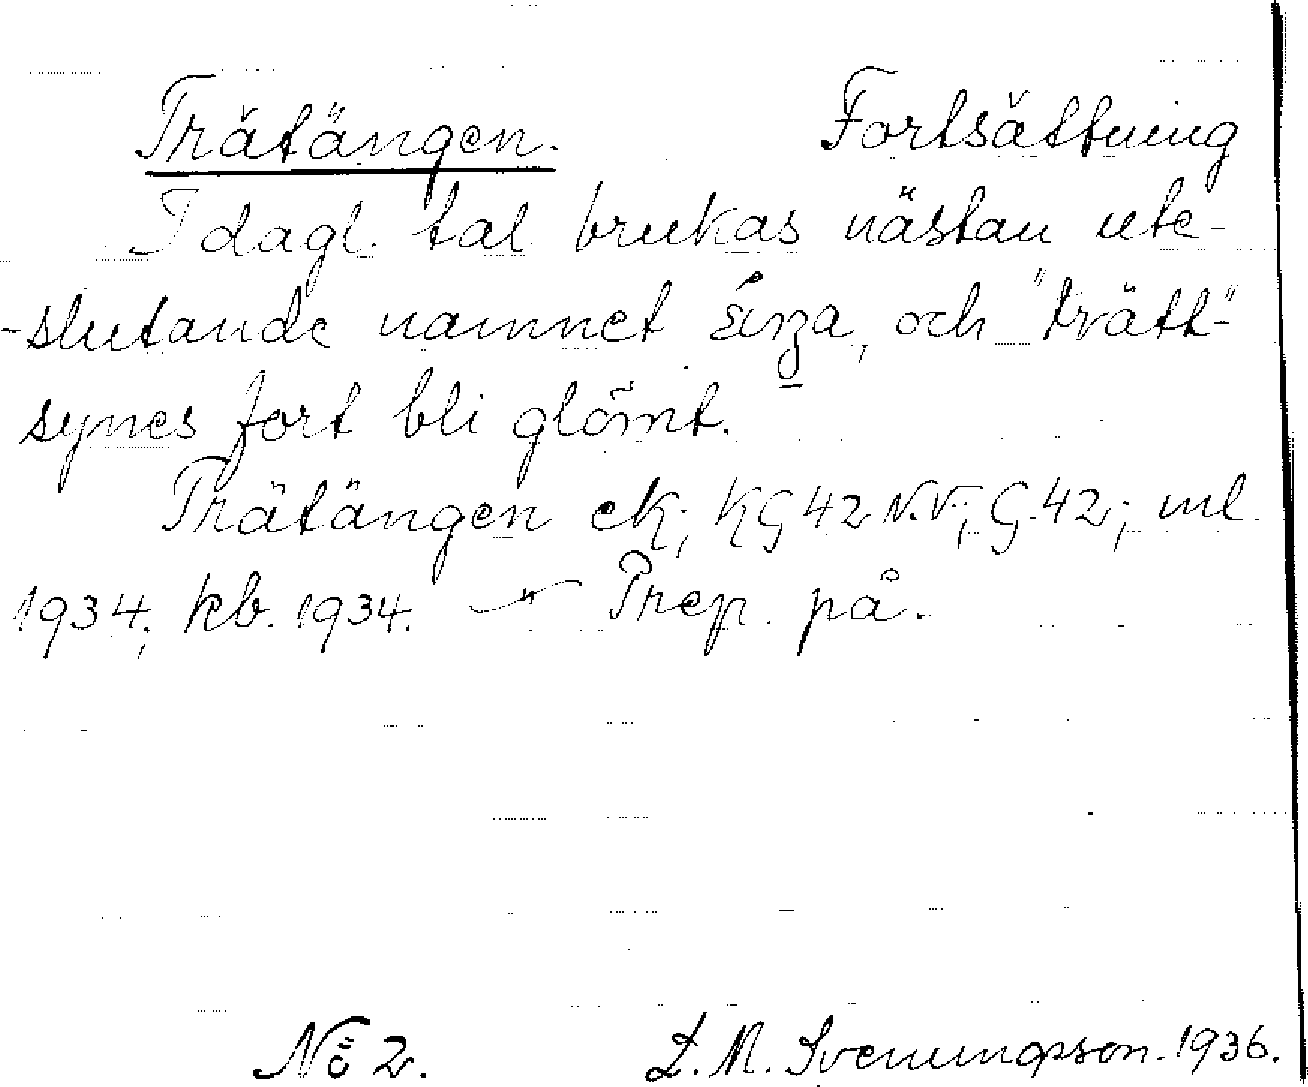 Trätängen. Fortsättning
I dagl. tal brukas nästan ute-
-slutande namnet och "trätt-"
synes fort bli glömt.
Trätängen ek; KG 42 N.V; G. 42; ml
1934; kb. 1934. — Prep. på.
No 2. L. M. Svenungsson. 1936.